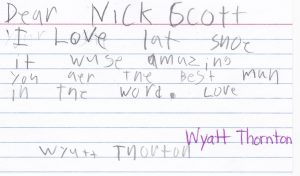 Dear Nick Scott
I Love lat snoe
it wuse amuzing
you aer the Best mun
in the word. Love
Wyatt Thornton
Wyutt Thorton